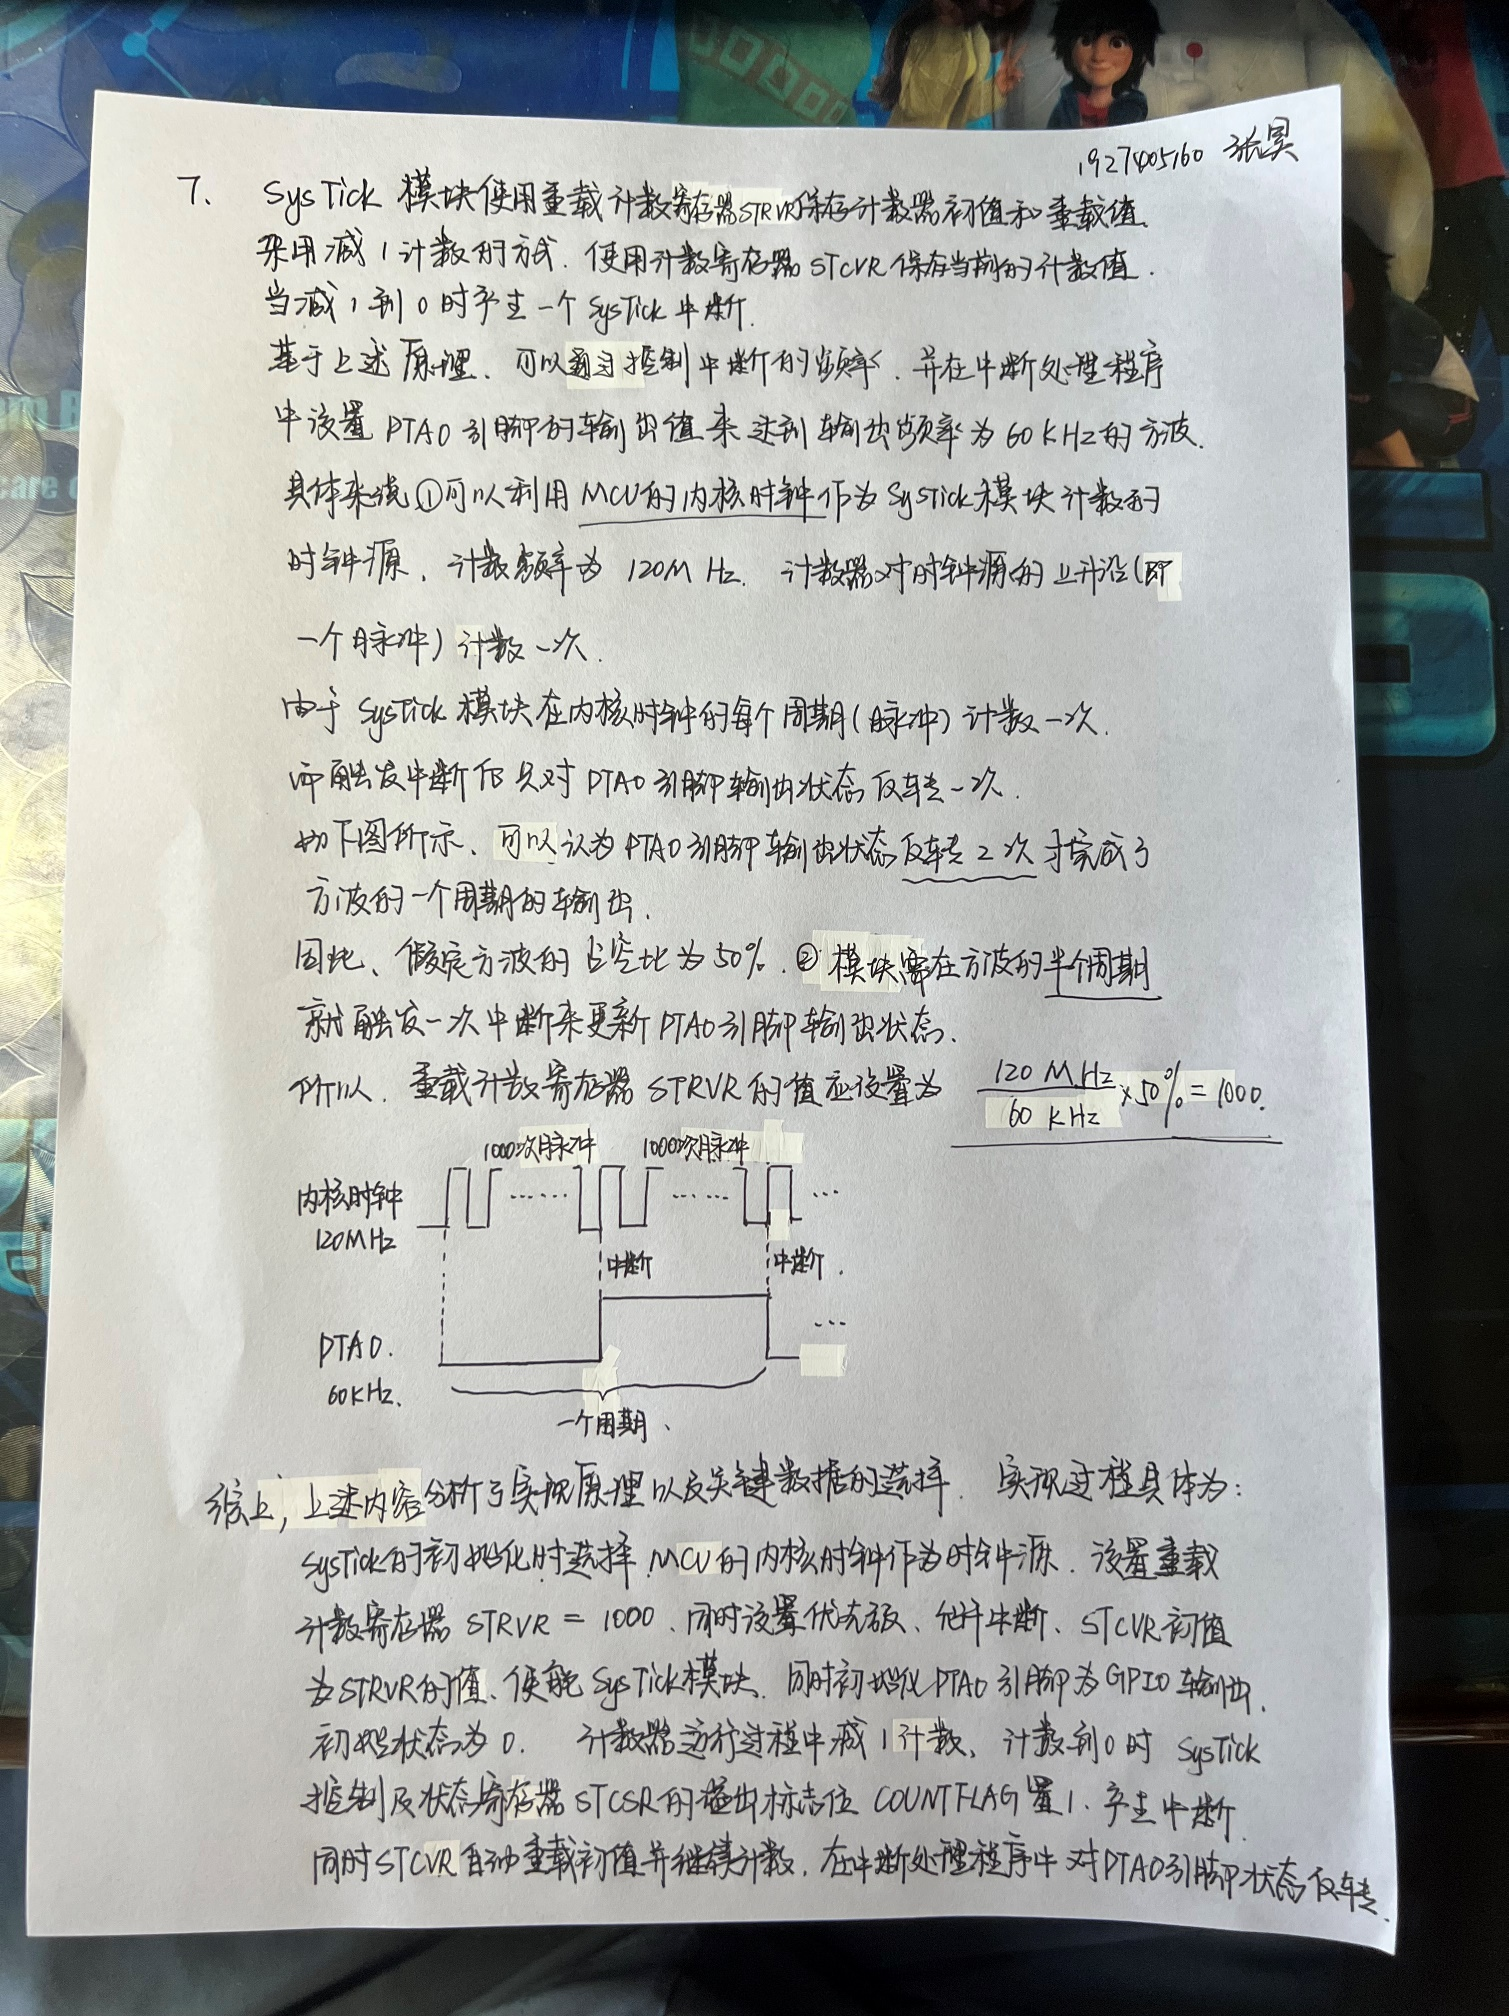 1927405160 张昊
7. SysTick 模块使用重载计数寄存器STRVR保存计数器初值和重载值
采用减1计数的方式. 使用计数寄存器STCVR保存当前的计数值.
当减1到0时产生一个SysTick中断.
基于上述原理、可以通过控制中断的频率、并在中断处理程序
中设置PTA0引脚的输出值来达到输出频率为60KHz的方波.
具体来说①可以利用MCU的内核时钟作为SysTick模块计数的
时钟源、计数频率为120MHz. 计数器对时钟源的上升沿(即
一个脉冲)计数一次.
由于SysTick模块在内核时钟的每个周期(脉冲)计数一次.
而触发中断仅只对PTA0引脚输出状态反转一次.
如下图所示、可以认为PTA0引脚输出状态反转2次才完成了
方波的一个周期的输出.
因此、假定方波的占空比为50%.②模块需在方波的半个周期
就触发一次中断来更新PTA0引脚输出状态.
所以、重载计数寄存器STRVR的值应设置为 120MHz/60KHz×50%=1000.
1000次脉冲 1000次脉冲
内核时钟 ...... ...... ...
120MHz
中断 中断.
PTA0. ...
60KHz.
一个周期、
综上,上述内容分析了实现原理以及关键数据的选择. 实现过程具体为:
SysTick的初始化时选择MCU的内核时钟作为时钟源、设置重载
计数寄存器STRVR=1000、同时设置优先级、允许中断、STCVR初值
为STRVR的值、使能SysTick模块、同时初始化PTA0引脚为GPIO输出,
初始状态为0. 计数器运行过程中减1计数、计数到0时SysTick
控制及状态寄存器STCSR的溢出标志位COUNTFLAG置1、产生中断
同时STCVR自动重载初值并继续计数、在中断处理程序中对PTA0引脚状态反转.